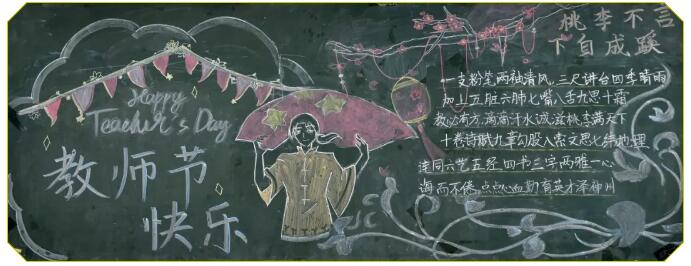 Happy
Teacher's Day
教师节
快乐
桃李不言
下自成蹊
一支粉笔两袖清风,三尺讲台四季晴雨
加上五脏六腑七嘴八舌九思十霜
教必有方,滴滴汗水诚滋桃李满天下
十卷诗赋九章勾股八索文思七纬地理
连同六艺五经四书三字两雅一心
诲而不倦,点点心血勤育英才泽神州